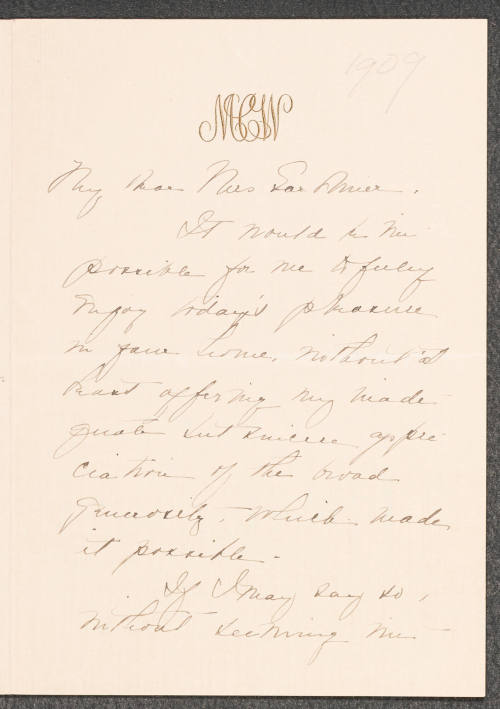 1909
MCW
My dear Mrs Gardner.
It would be im-
possible for me to fully
enjoy today's pleasure
in your home, without at
least offering my inade-
quate but sincere appre-
ciation of the broad
generosity, which made
it possible.
If I may say so,
without seeming im-